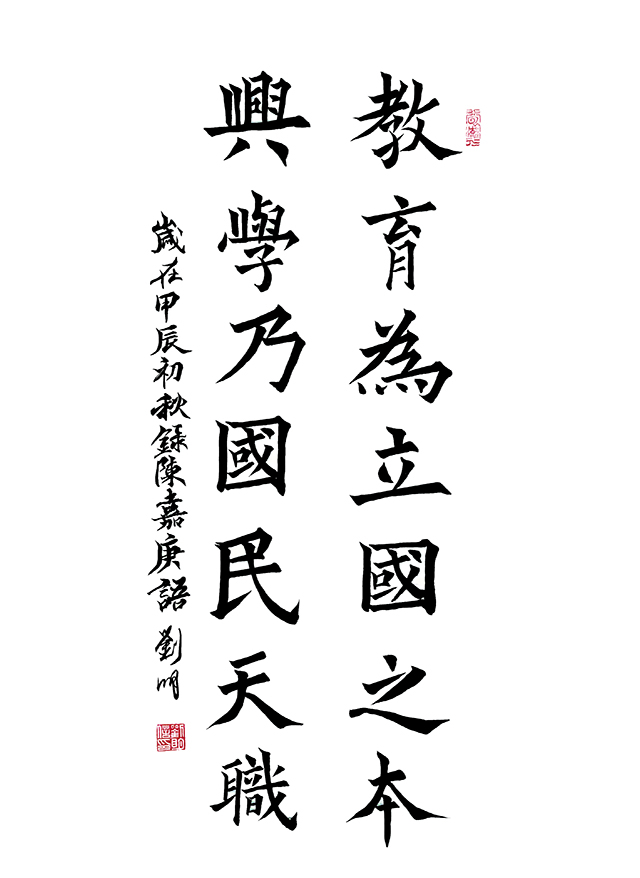 教育為立國之本
興學乃國民天職
歲在甲辰初秋錄陳嘉庚語 劉明